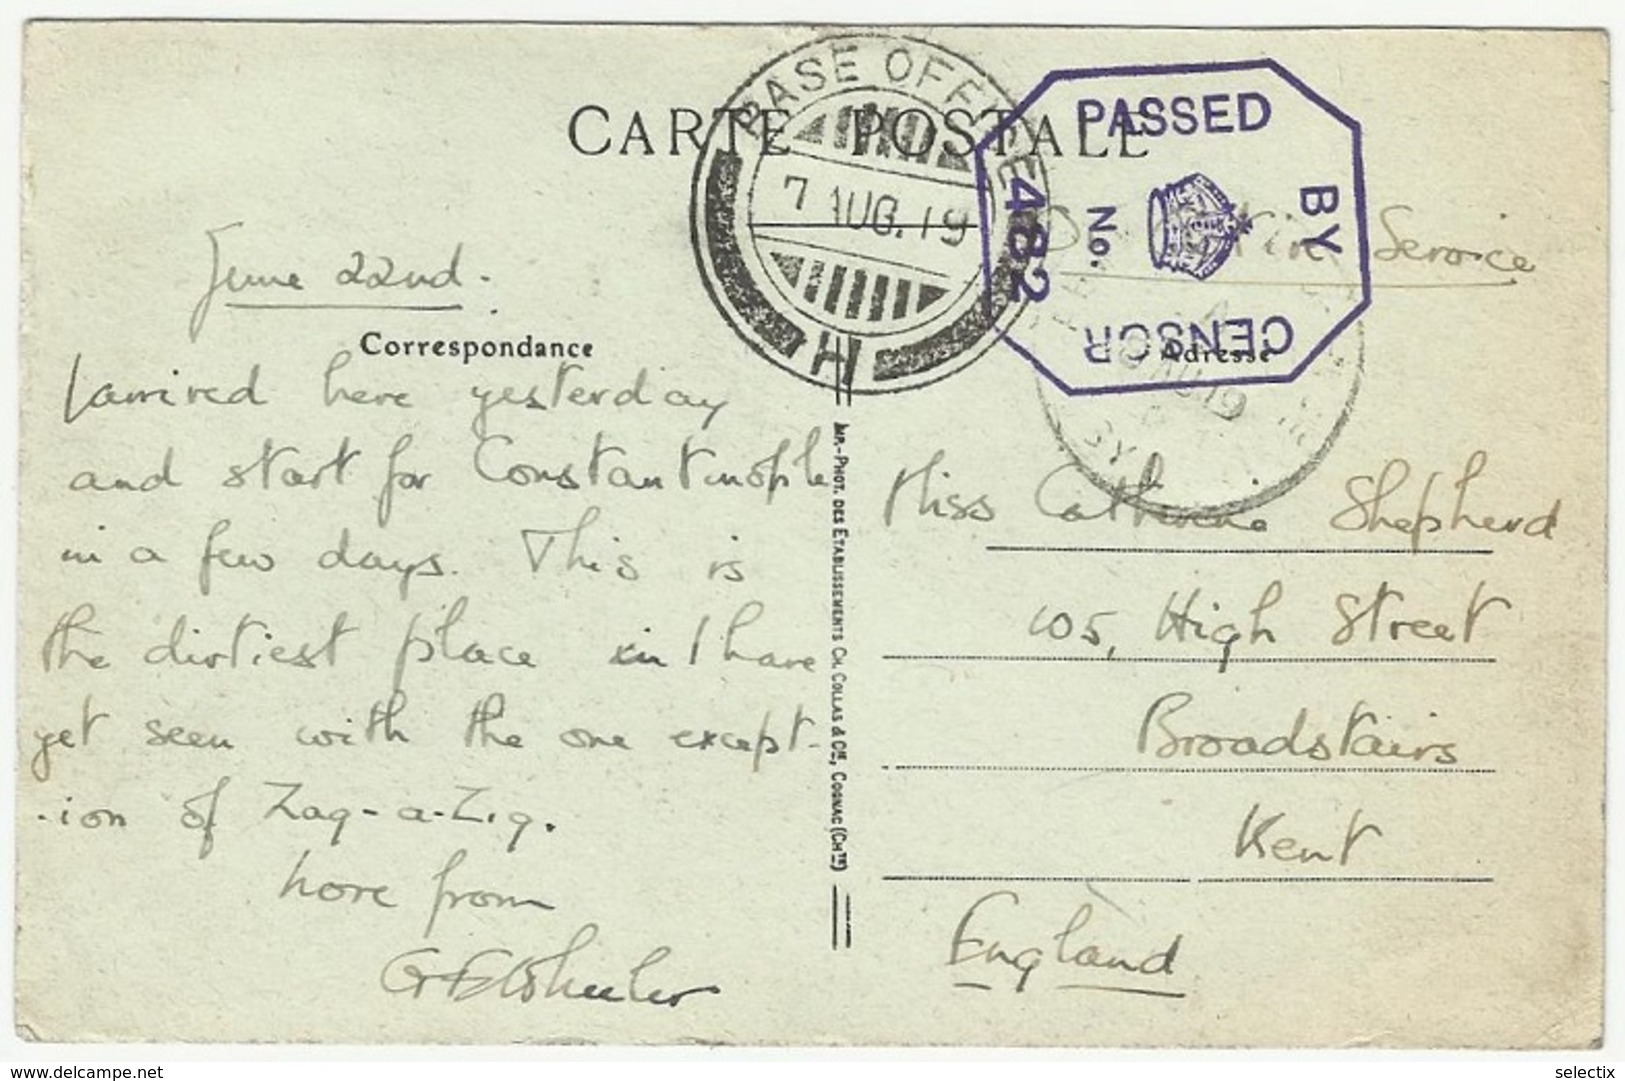 CARTE POSTALE
BASE OFFICE
7 AUG. 19
H
PASSED
BY
CENSOR
No.
482
Service
June 22nd.
Correspondance
Adresse
I arrived here yesterday
and start for Constantinople
in a few days. This is
the dirtiest place in I have
yet seen with the one except-
-ion of Zag-a-Zig.
Love from
G E Wheeler
IMP.-PHOT. DES ETABLISSEMENTS CH. COLLAS & CIE, COGNAC (CHTE)
Miss Catherine Shepherd
105, High Street
Broadstairs
Kent
England
selectix